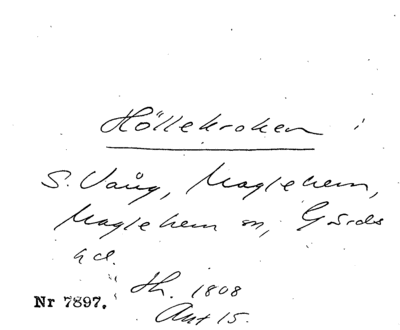 Höllekroken i
S. Vång, Maglehem,
Maglehem sn, Gärds
hd.
Nr 7897. " Sk. 1808
Akt 15.